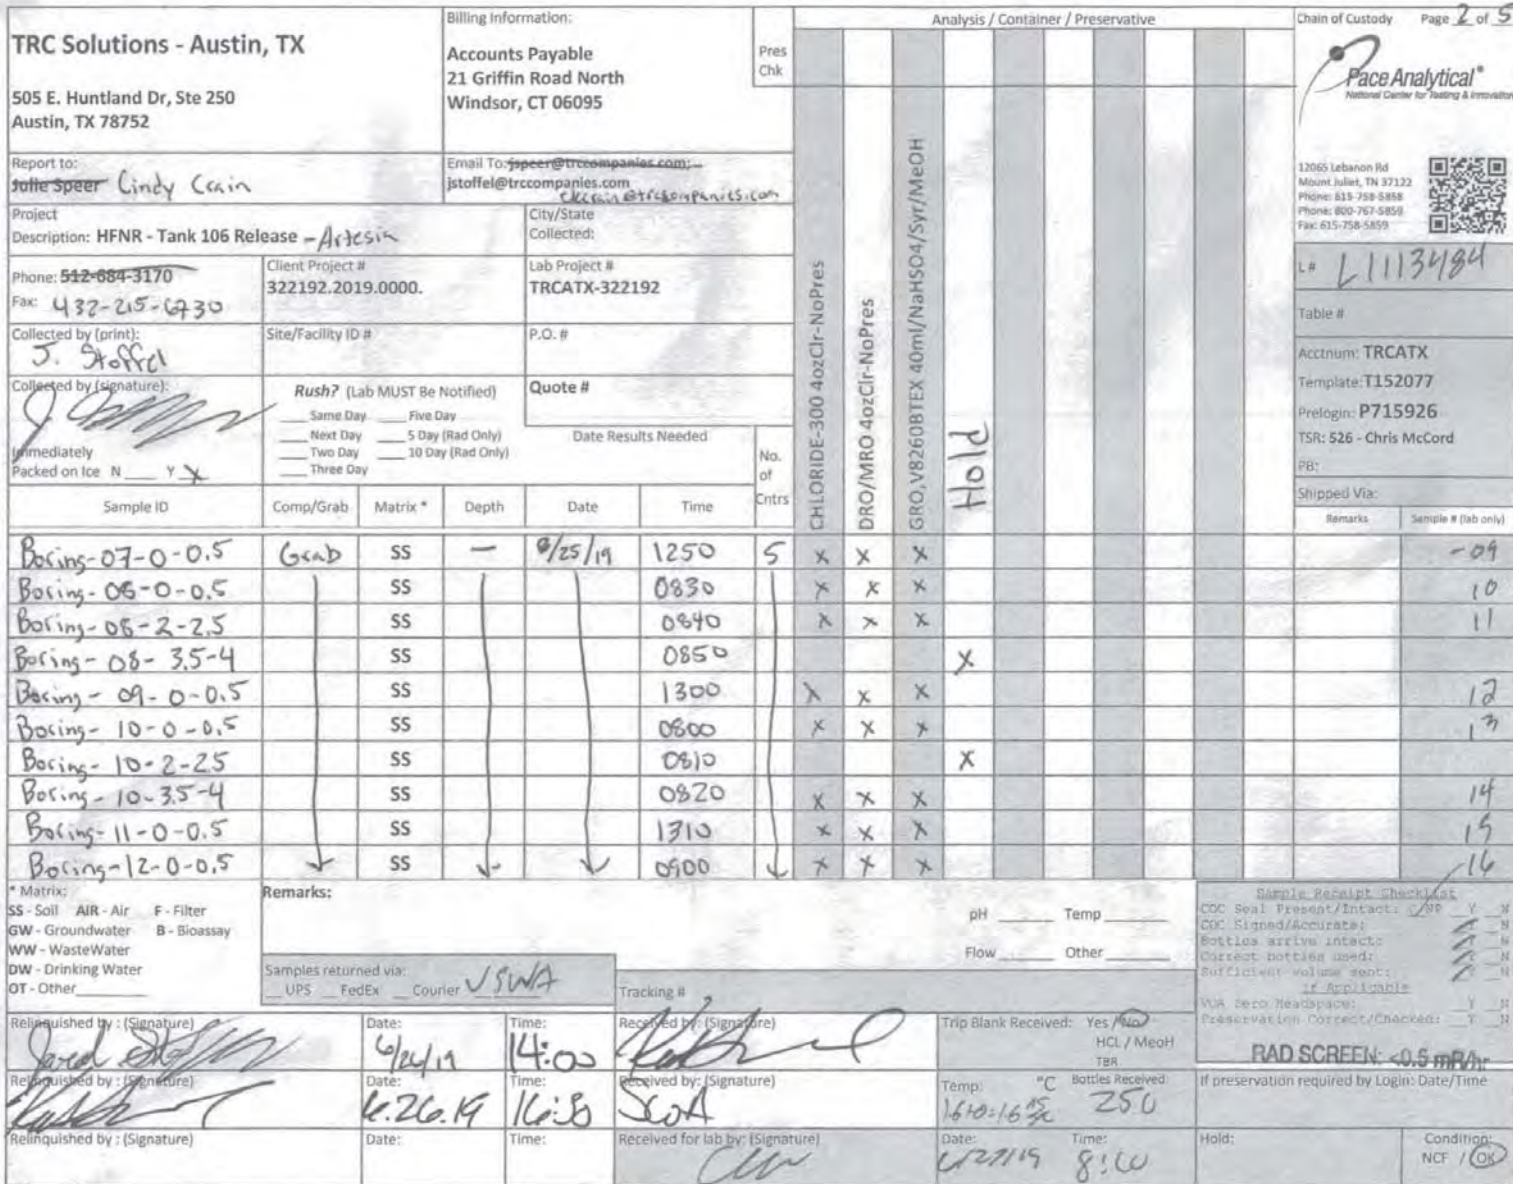 Chain of Custody Page 2 of 5
TRC Solutions - Austin, TX
505 E. Huntland Dr, Ste 250
Austin, TX 78752
Billing Information:
Accounts Payable
21 Griffin Road North
Windsor, CT 06095
Pres
Chk
Analysis / Container / Preservative
Pace Analytical®
National Center for Testing & Innovation
12065 Lebanon Rd
Mount Juliet, TN 37122
Phone: 615-758-5858
Phone: 800-767-5859
Fax: 615-758-5859
Report to:
Julie Speer Cindy Crain
Email To: jspeer@trccompanies.com;
jstoffel@trccompanies.com
Project
Description: HFNR - Tank 106 Release - Artesia
City/State
Collected:
Phone: 512-684-3170
Fax: 432-215-6730
Client Project #
322192.2019.0000.
Lab Project #
TRCATX-322192
Collected by (print):
J. Stoffel
Site/Facility ID #
P.O. #
Collected by (signature):
Immediately
Packed on Ice N ___ Y X
Rush? (Lab MUST Be Notified)
___ Same Day ___ Five Day
___ Next Day ___ 5 Day (Rad Only)
___ Two Day ___ 10 Day (Rad Only)
___ Three Day
Quote #
Date Results Needed
No.
of
Cntrs
CHLORIDE-300 4ozClr-NoPres
DRO/MRO 4ozClr-NoPres
GRO,V8260BTEX 40ml/NaHSO4/Syr/MeOH
Hold
L# L1113484
Table #
Acctnum: TRCATX
Template:T152077
Prelogin: P715926
TSR: 526 - Chris McCord
PB:
Shipped Via:
Sample ID Comp/Grab Matrix * Depth Date Time Remarks Sample # (lab only)
Boring-07-0-0.5 Grab SS — 6/25/19 1250 5 x x x -09
Boring-08-0-0.5 SS 0830 x x x 10
Boring-08-2-2.5 SS 0840 x x x 11
Boring-08-3.5-4 SS 0850 x
Boring-09-0-0.5 SS 1300 x x x 12
Boring-10-0-0.5 SS 0800 x x x 13
Boring-10-2-2.5 SS 0810 x
Boring-10-3.5-4 SS 0820 x x x 14
Boring-11-0-0.5 SS 1310 x x x 15
Boring-12-0-0.5 SS 0900 x x x -16
* Matrix:
SS - Soil AIR - Air F - Filter
GW - Groundwater B - Bioassay
WW - WasteWater
DW - Drinking Water
OT - Other
Remarks:
pH ___ Temp ___
Flow ___ Other ___
Samples returned via:
__ UPS __ FedEx __ Courier
Tracking #
Sample Receipt Checklist
COC Seal Present/Intact: NP Y N
COC Signed/Accurate: Y N
Bottles arrive intact: Y N
Correct bottles used: Y N
Sufficient volume sent: Y N
If Applicable
VOA Zero Headspace: Y N
Preservation Correct/Checked: Y N
RAD SCREEN: <0.5 mR/hr
Relinquished by : (Signature)
Date: 6/26/19
Time: 14:00
Received by: (Signature)
Trip Blank Received: Yes / No
HCL / MeoH
TBR
Relinquished by : (Signature)
Date: 6.26.19
Time: 16:30
Received by: (Signature)
Temp: °C
Bottles Received: 250
If preservation required by Login: Date/Time
Relinquished by : (Signature)
Date:
Time:
Received for lab by: (Signature)
Date: 6/27/19
Time:
Hold:
Condition:
NCF / OK